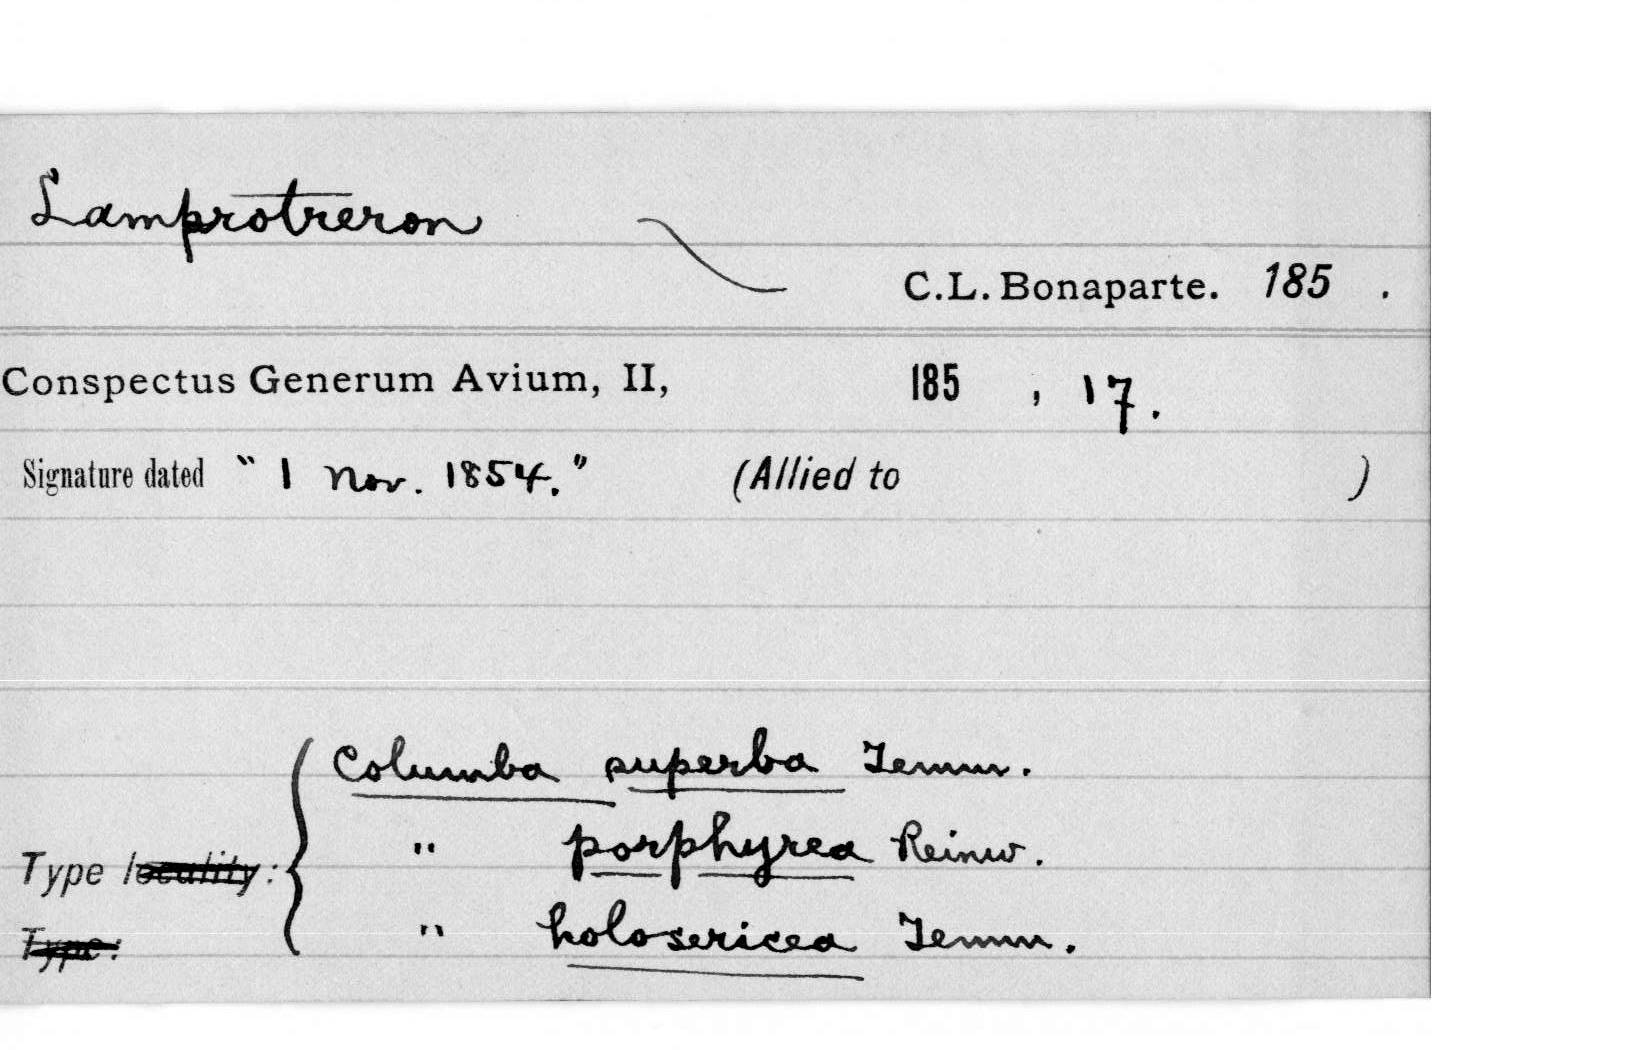 Lamprotreron
C.L. Bonaparte. 185 .
Conspectus Generum Avium, II, 185 , 17.
Signature dated " 1 Nov. 1854." (Allied to )
Columba superba Temm.
" porphyrea Reinw.
Type locality:
" holosericea Temm.
Type: